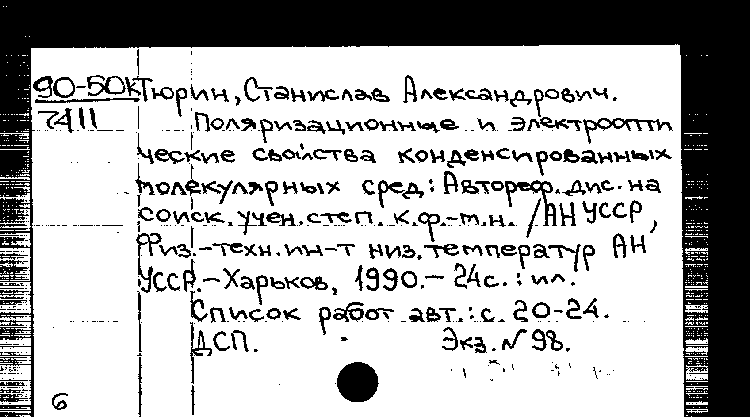 90-50к Тюрин, Станислав Александрович.
7411 Поляризационные и электроопти
ческие свойства конденсированных
молекулярных сред: Автореф. дис. на
соиск. учен. степ. к.ф.-м.н. /АН УССР,
Физ.-техн. ин-т низ. температур АН
УССР.-Харьков, 1990.-24с.: ил.
Список работ авт.: с. 20-24.
ДСП. Экз. № 98.
6